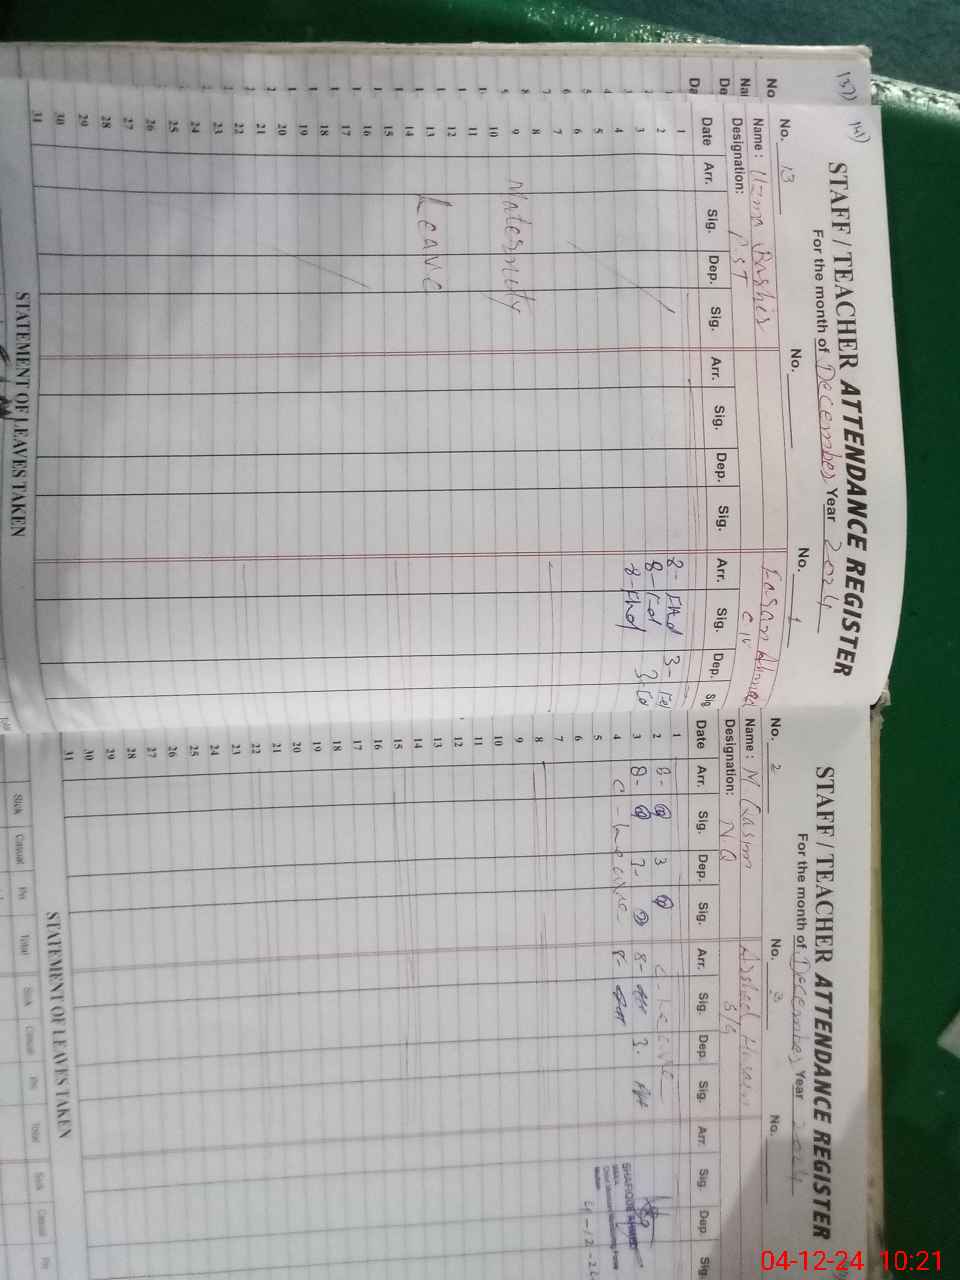 137)
141)
STAFF / TEACHER ATTENDANCE REGISTER
For the month of December Year 2024
No. 13 No. No. 1
Name : Uzma Bashir
Designation: PST
C IV
Date Arr. Sig. Dep. Sig. Arr. Sig. Dep. Sig. Arr. Sig. Dep. Sig
1
2 8- 3-
3 8- 3-
4 8-
5
6
7
8
9 Maternity
10
11
12
13 Leave
14
15
16
17
18
19
20
21
22
23
24
25
26
27
28
29
30
31
STATEMENT OF LEAVES TAKEN
STAFF / TEACHER ATTENDANCE REGISTER
For the month of December Year 2024
No. 2 No. 3 No.
Name : M Qasim Arshad
Designation: NQ
Date Arr. Sig. Dep. Sig. Arr. Sig. Dep. Sig. Arr. Sig. Dep. Sig.
1
2 8- 3 C-Leave
3 8- 3- 8- 3-
4 C-Leave 8-
5
6
7
8
9
10
11
12
13
14
15
16
17
18
19
20
21
22
23
24
25
26
27
28
29
30
31
SHAFIQUE AHMED
STATEMENT OF LEAVES TAKEN
Sick Casual Total Sick Casual Total Sick Casual
04-12-24 10:21